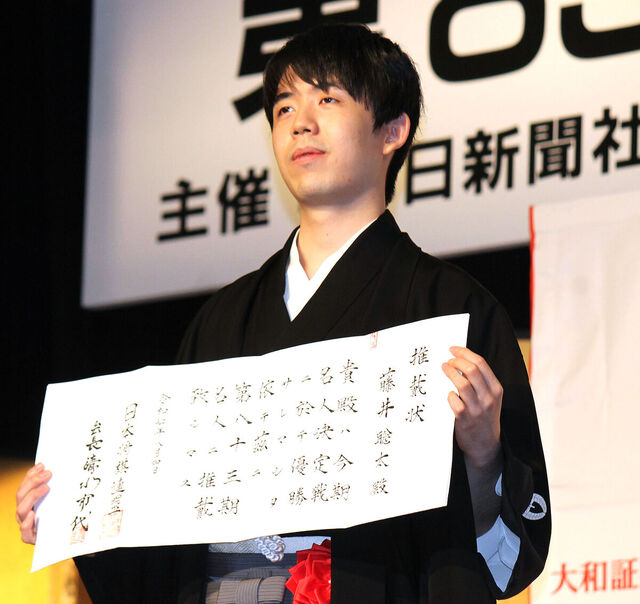 第83
主催
日新聞社
推戴状
藤井聡太殿
貴殿ハ今期
名人決定戦
ニ於テ優勝
サレマシタ
依テ茲ニ
第八十三期
名人ニ推戴
致シマス
日本将棋連盟
大和証